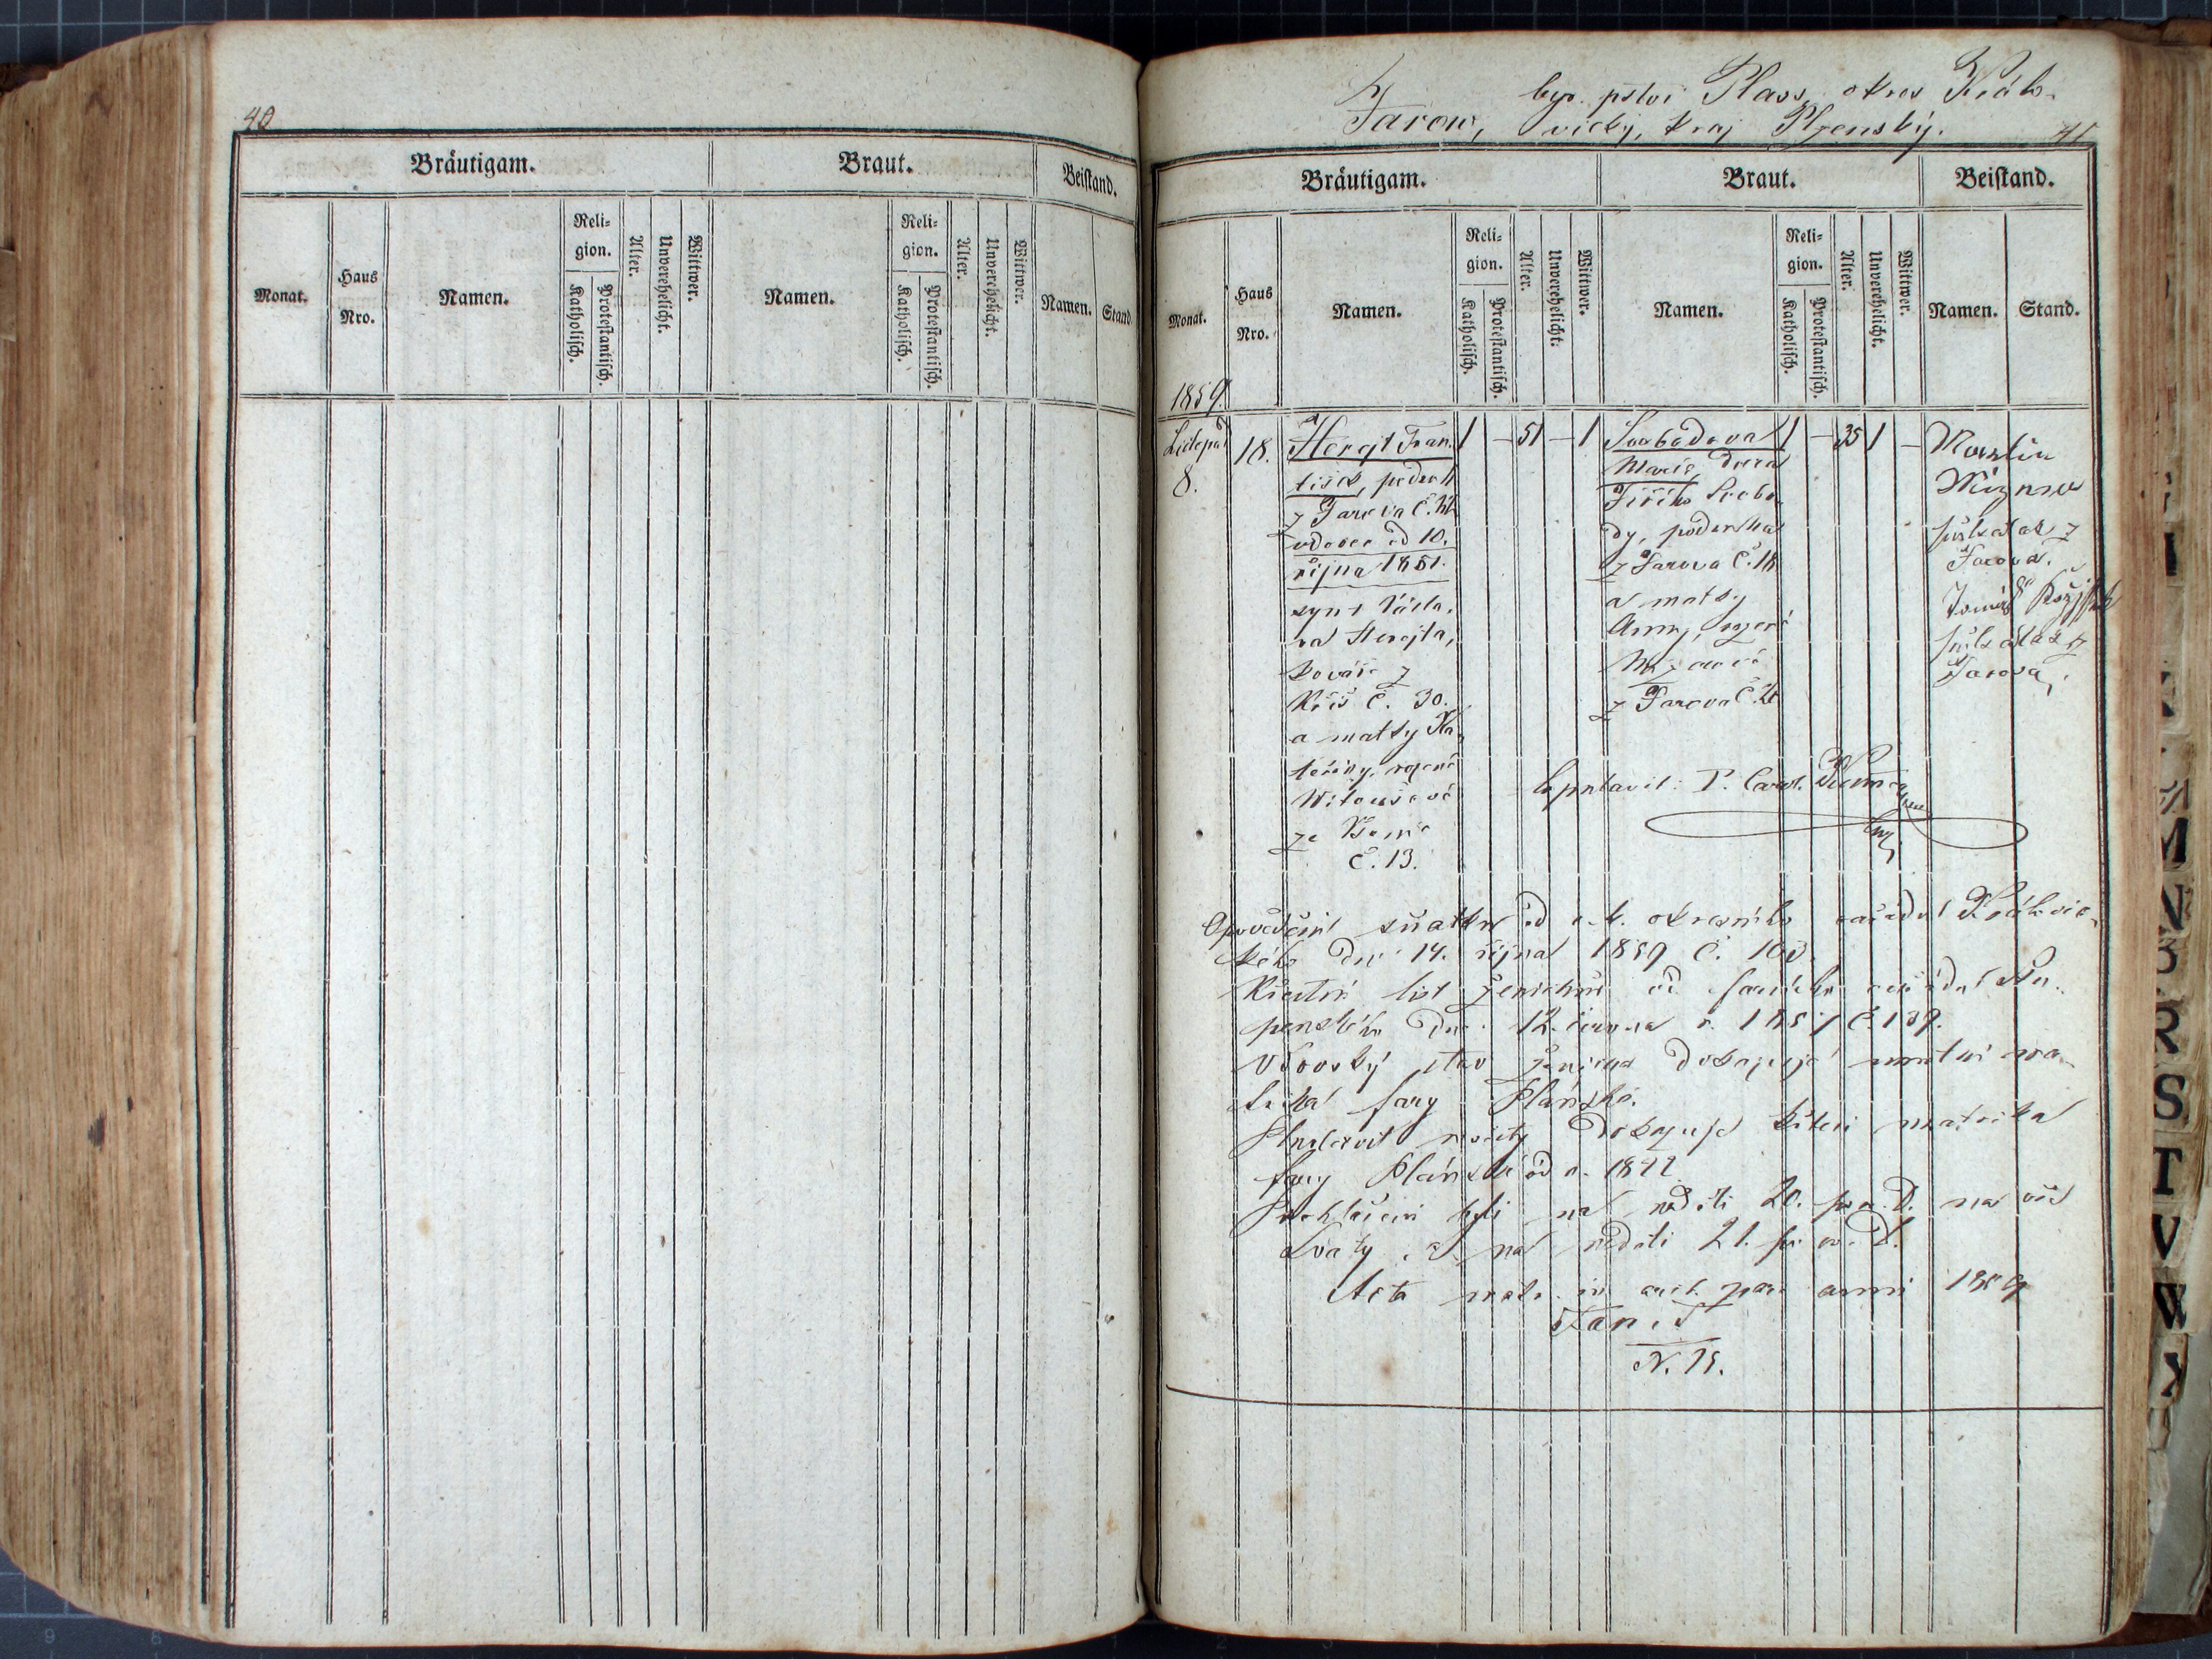 40
Bräutigam.
Braut.
Beistand.
Monat.
Haus Nro.
Namen.
Religion.
Katholisch.
Protestantisch.
Alter.
Unverehelicht.
Wittwer.
Namen.
Religion.
Katholisch.
Protestantisch.
Alter.
Unverehelicht.
Wittwer.
Namen.
Stand.
byv. pství Plass, okres Králo-
Jarow, vický, kraj Plzenský.
41
Bräutigam.
Braut.
Beistand.
Monat.
Haus Nro.
Namen.
Religion.
Katholisch.
Protestantisch.
Alter.
Unverehelicht.
Wittwer.
Namen.
Religion.
Katholisch.
Protestantisch.
Alter.
Unverehelicht.
Wittwer.
Namen.
Stand.
1859.
Listopad
8.
18.
Herejt Fran-
tišek, podruh
z Jarova Č.
vdovec od 10.
října 1851.
syn Václa-
va Herejta,
kováře z
Kříš Č. 30.
a matky Ka-
teřiny, rozené
Witoušové
ze Břemě
Č. 13.
1 — 51 — 1
Svobodova
Marie, dcera
Jiřího Svobo-
dy, podruha
z Jarova Č. 18
a matky
Anny, rozené
z Jarova Č.
1 — 35 1 —
Martin
sedlák z
Jarova.
Tomáš
sedlák z
Jarova.
Copulavit: P. Carol.
Opovědění sňatku od c. k. okresního ouřadu Královic-
kého dne 14. října 1859 Č. 103.
Křestní list ženichův od farního ouřadu
penského dne 12. června r. 1857 Č. 139.
Vdovský stav ženicha dokazuje úmrtní ma-
trika fary Plánské.
nevěsty dokazuje křestní matrika
fary Plánské od r.
Prohlášeni byli na neděli 20. po sv. D. na vše
svatý a na neděli 21. po sv. D.
Acta matr. in arch. par. anni 1859
N. 15.